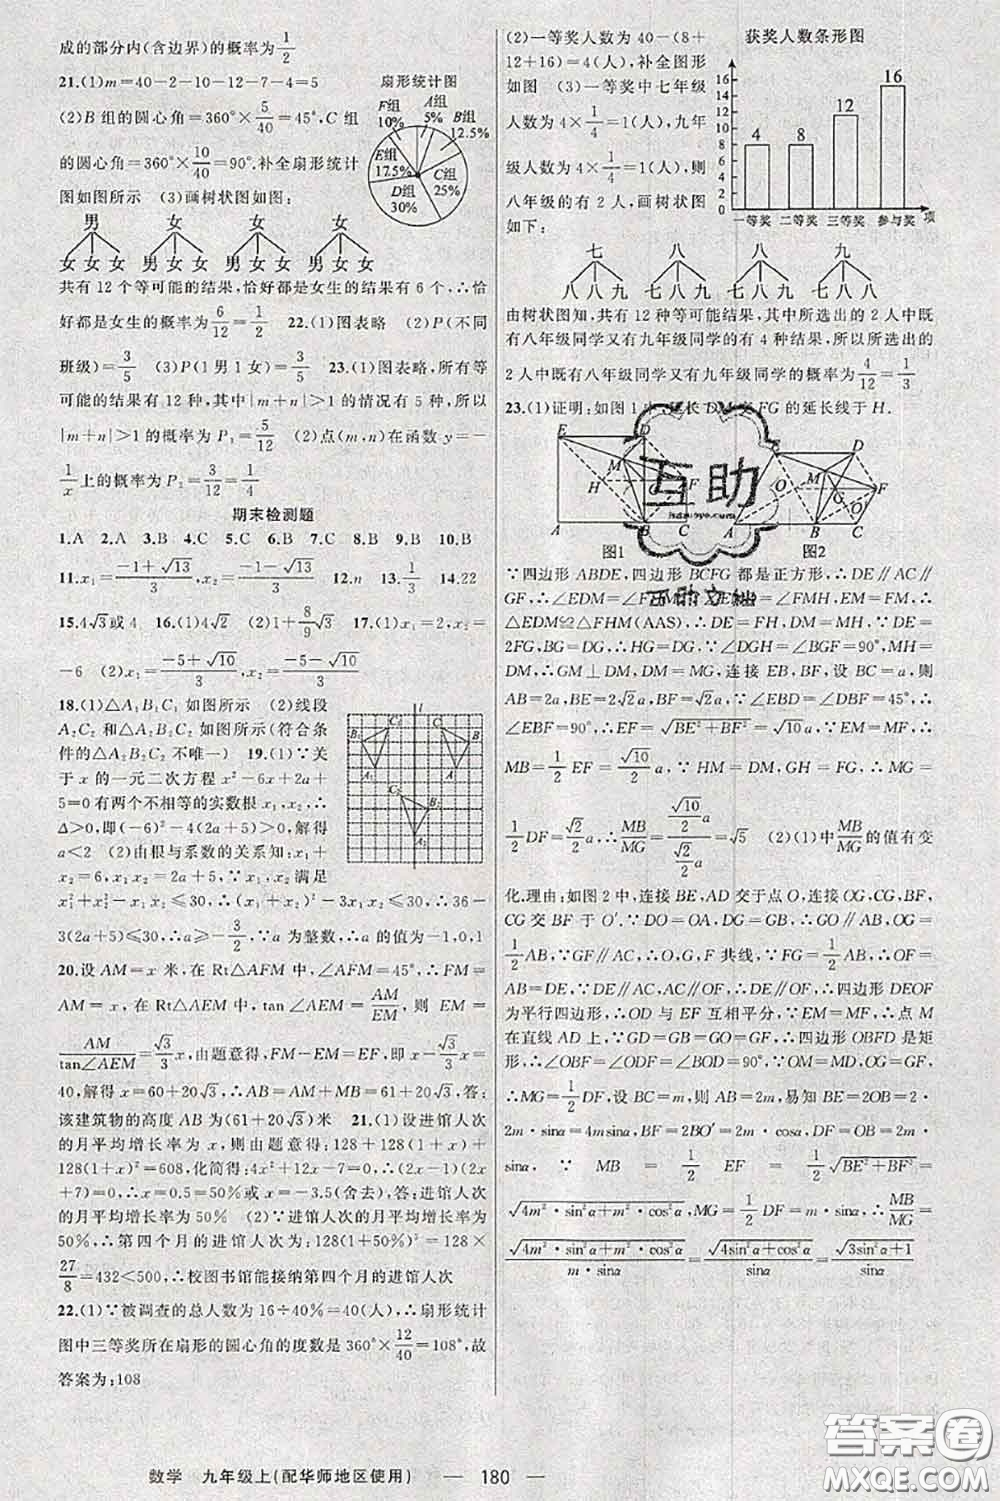 成的部分内(含边界)的概率为1/2
21.(1)m=40-2-10-12-7-4=5
(2)B 组的圆心角=360°×5/40=45°,C 组
的圆心角=360°×10/40=90°.补全扇形统计
图如图所示 (3)画树状图如图:
扇形统计图
F组 10%
A组 5%
B组 12.5%
E组 17.5%
C组 25%
D组 30%
男 女 女 女
女 女 女 男 女 女 男 女 女 男 女 女
共有 12 个等可能的结果,恰好都是女生的结果有 6 个,∴恰
好都是女生的概率为6/12=1/2 22.(1)图表略 (2)P(不同
班级)=3/5 (3)P(1 男 1 女)=3/5 23.(1)图表略,所有等
可能的结果有 12 种,其中|m+n|>1 的情况有 5 种,所以
|m+n|>1 的概率为 P₁=5/12 (2)点(m,n)在函数 y=-
1/x上的概率为 P₂=3/12=1/4
期末检测题
1.A 2.A 3.B 4.C 5.C 6.B 7.B 8.B 9.B 10.B
11.x₁=(-1+√13)/3,x₂=(-1-√13)/3 12.n 13.1/3 14.22
15.4√3或 4 16.(1)4√2 (2)1+8/9√3 17.(1)x₁=2,x₂=
-6 (2)x₁=(-5+√10)/3,x₂=(-5-√10)/3
18.(1)△A₁B₁C₁ 如图所示 (2)线段
A₂C₂ 和△A₂B₂C₂ 如图所示(符合条
件的△A₂B₂C₂ 不唯一) 19.(1)∵关
于 x 的一元二次方程 x²-6x+2a+
5=0 有两个不相等的实数根 x₁,x₂,∴
Δ>0,即(-6)²-4(2a+5)>0,解得
a<2 (2)由根与系数的关系知:x₁+
x₂=6,x₁x₂=2a+5,∵x₁,x₂ 满足
x₁²+x₂²-x₁x₂≤30,∴(x₁+x₂)²-3x₁x₂≤30,∴36-
3(2a+5)≤30,∴a≥-3/2,∵a 为整数,∴a 的值为-1,0,1
20.设 AM=x 米,在 Rt△AFM 中,∠AFM=45°,∴FM=
AM=x,在 Rt△AEM 中,tan∠AEM=AM/EM,则 EM=
AM/tan∠AEM=√3/3x,由题意得,FM-EM=EF,即 x-√3/3x=
40,解得 x=60+20√3,∴AB=AM+MB=61+20√3,答:
该建筑物的高度 AB 为(61+20√3)米 21.(1)设进馆人次
的月平均增长率为 x,则由题意得:128+128(1+x)+
128(1+x)²=608,化简得:4x²+12x-7=0,∴(2x-1)(2x
+7)=0,∴x=0.5=50%或 x=-3.5(舍去),答:进馆人次
的月平均增长率为 50% (2)∵进馆人次的月平均增长率为
50%,∴第四个月的进馆人次为:128(1+50%)³=128×
27/8=432<500,∴校图书馆能接纳第四个月的进馆人次
22.(1)∵被调查的总人数为 16÷40%=40(人),∴扇形统计
图中三等奖所在扇形的圆心角的度数是 360°×12/40=108°,故
答案为:108
(2)一等奖人数为 40-(8+
12+16)=4(人),补全图形
如图 (3)一等奖中七年级
人数为 4×1/4=1(人),九年
级人数为 4×1/4=1(人),则
八年级的有 2 人,画树状图
如下:
获奖人数条形图
16 14 12 10 8 6 4 2 0
4 8 12 16
一等奖 二等奖 三等奖 参与奖 项
七 八 八 九
八 八 九 七 八 九 七 八 九 七 八 八
由树状图知,共有 12 种等可能结果,其中所选出的 2 人中既
有八年级同学又有九年级同学的有 4 种结果,所以所选出的
2 人中既有八年级同学又有九年级同学的概率为4/12=1/3
23.(1)证明:如图 1 FG 的延长线于 H.
图1
图2
互助
互助文档
∵四边形 ABDE,四边形 BCFG 都是正方形,∴DE∥AC∥
GF,∴∠EDM=∠FHM,∵∠EMD=∠FMH,EM=FM,∴
△EDM≌△FHM(AAS),∴DE=FH,DM=MH,∵DE=
2FG,BG=DG,∴HG=DG,∵∠DGH=∠BGF=90°,MH=
DM,∴GM⊥DM,DM=MG,连接 EB,BF,设 BC=a,则
AB=2a,BE=2√2a,BF=√2a,∵∠EBD=∠DBF=45°,∴
∠EBF=90°,∴EF=√(BE²+BF²)=√10a,∵EM=MF,∴
MB=1/2EF=√10/2a,∵HM=DM,GH=FG,∴MG=
1/2DF=√2/2a,∴MB/MG=(√10/2a)/(√2/2a)=√5 (2)(1)中MB/MG的值有变
化.理由:如图 2 中,连接 BE,AD 交于点 O,连接 OG,CG,BF,
CG 交 BF 于 O′.∵DO=OA,DG=GB,∴GO∥AB,OG=
1/2AB,∵GF∥AC,∴O,G,F 共线,∵FG=1/2AB,∴OF=
AB=DE,∵DE∥AC,AC∥OF,∴DE∥OF,∴四边形 DEOF
为平行四边形,∴OD 与 EF 互相平分,∵EM=MF,∴点 M
在直线 AD 上,∵GD=GB=GO=GF,∴四边形 OBFD 是矩
形,∴∠OBF=∠ODF=∠BOD=90°,∵OM=MD,OG=GF,
∴MG=1/2DF,设 BC=m,则 AB=2m,易知 BE=2OB=2·
2m·sinα=4msinα,BF=2BO′=2m·cosα,DF=OB=2m·
sinα,∵MB=1/2EF=1/2√(BE²+BF²)=
√(4m²·sin²α+m²·cos²α),MG=1/2DF=m·sinα,∴MB/MG=
√(4m²·sin²α+m²·cos²α)/(m·sinα)=√(4sin²α+cos²α)/sinα=√(3sin²α+1)/sinα
数学 九年级上(配华师地区使用) — 180 —
答案圈
MXQE.COM